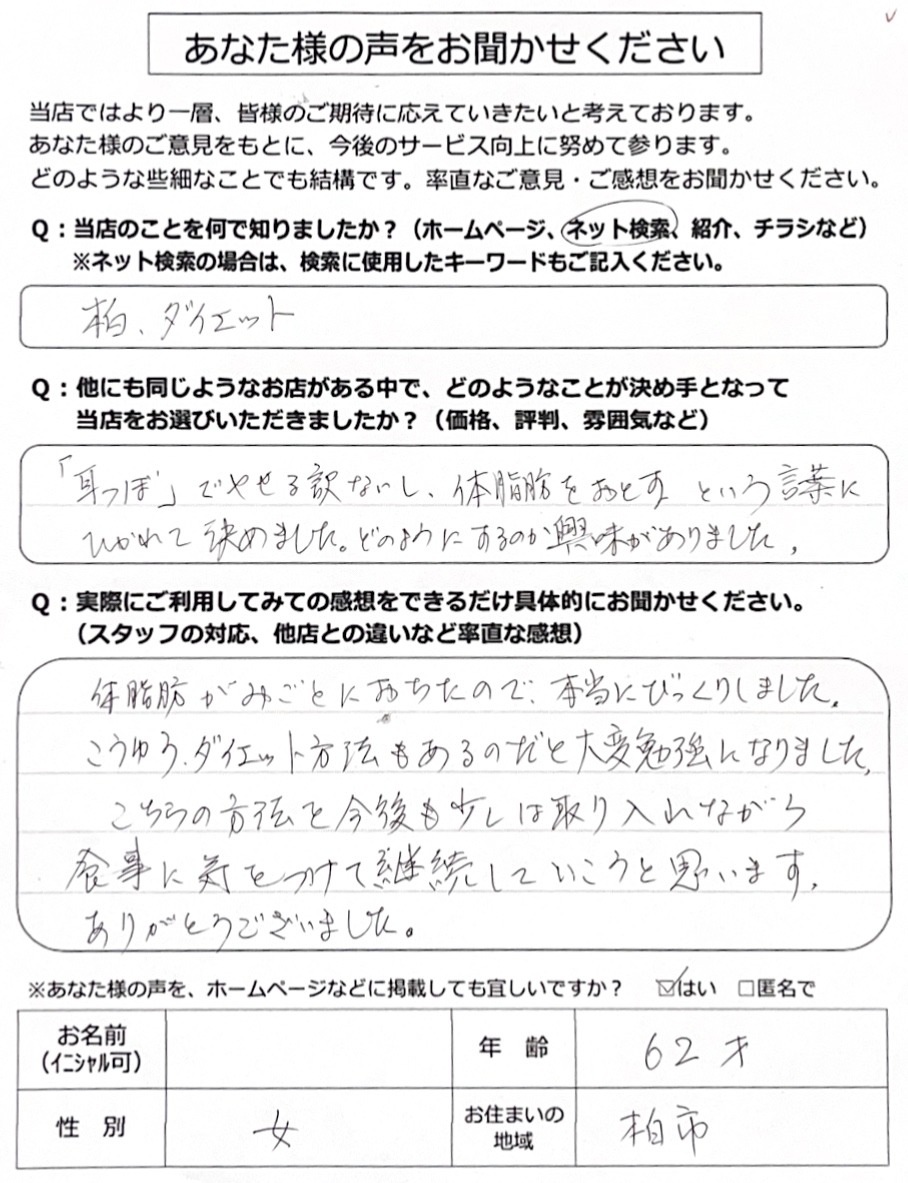 あなた様の声をお聞かせください
当店ではより一層、皆様のご期待に応えていきたいと考えております。
あなた様のご意見をもとに、今後のサービス向上に努めて参ります。
どのような些細なことでも結構です。率直なご意見・ご感想をお聞かせください。
Q：当店のことを何で知りましたか？（ホームページ、ネット検索、紹介、チラシなど）
※ネット検索の場合は、検索に使用したキーワードもご記入ください。
柏、ダイエット
Q：他にも同じようなお店がある中で、どのようなことが決め手となって
当店をお選びいただきましたか？（価格、評判、雰囲気など）
「耳つぼ」でやせる訳ないし、体脂肪をおとす という言葉に
ひかれて決めました。どのようにするのか興味がありました。
Q：実際にご利用してみての感想をできるだけ具体的にお聞かせください。
（スタッフの対応、他店との違いなど率直な感想）
体脂肪がみごとにおちたので、本当にびっくりしました。
こうゆう、ダイエット方法もあるのだと大変勉強になりました。
こちらの方法を今後も少しは取り入れながら
食事に気をつけて継続していこうと思います。
ありがとうございました。
※あなた様の声を、ホームページなどに掲載しても宜しいですか？ ☑はい □匿名で
お名前
（イニシャル可）
年 齢 62才
性 別 女
お住まいの
地域 柏市